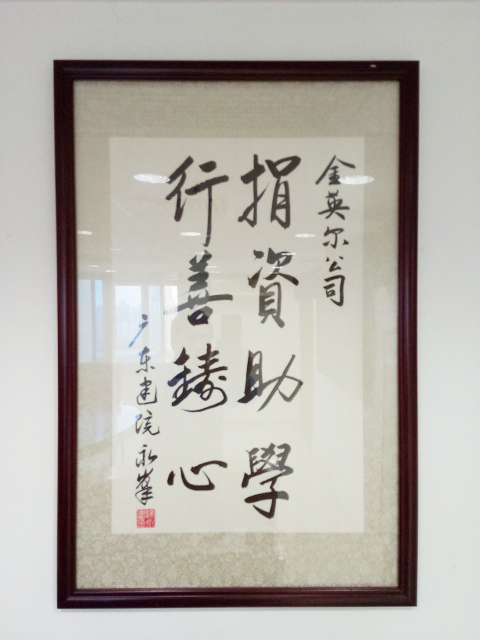 金英尔公司
捐資助學
行善鑄心
广东建院永峯